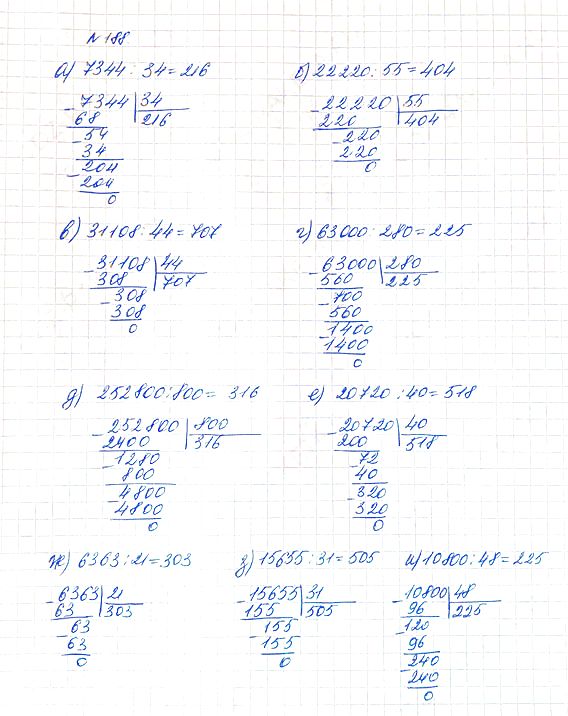 N 188
а) 7344 : 34 = 216
- 7344 | 34
68 | 216
- 54
34
- 204
204
0
б) 22220 : 55 = 404
- 22220 | 55
220 | 404
- 220
220
0
в) 31108 : 44 = 707
- 31108 | 44
308 | 707
- 308
308
0
г) 63000 : 280 = 225
- 63000 | 280
560 | 225
- 700
560
- 1400
1400
0
д) 252800 : 800 = 316
- 252800 | 800
2400 | 316
- 1280
800
- 4800
- 4800
0
е) 20720 : 40 = 518
- 20720 | 40
200 | 518
- 72
40
- 320
320
0
ж) 6363 : 21 = 303
- 6363 | 21
63 | 303
- 63
63
0
з) 15655 : 31 = 505
- 15655 | 31
155 | 505
- 155
155
0
и) 10800 : 48 = 225
- 10800 | 48
96 | 225
- 120
96
- 240
240
0